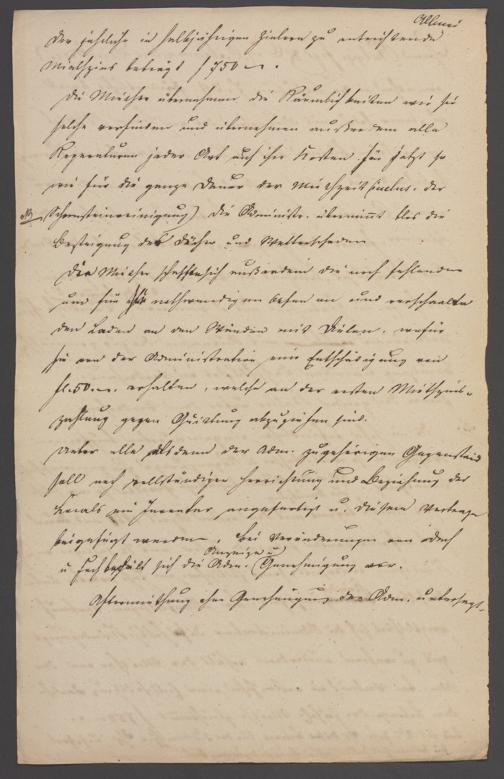 Der jährliche in halbjährigen Zielern zu entrichtende
Miethzins beträgt f 750 –.
Die Miether übernehmen die Räumlichkeiten wie sie
solche vorfinden und übernehmen ausserdem alle
Reparaturen jeder Art auf ihre Kosten für jetzt so
wie für die ganze Dauer der Miethzeit (inclus. der
Schornsteinreinigung) Die Administr. übernimmt blos die
Besteigung der Dächer und Wetterschaden
Die Miether schaffen sich ausserdem die noch fehlenden
und für nothwendigen Oefen an und verschaalen
den Laden an den Wänden mit Dielen, wofür
sie von der Administration eine Entschädigung von
fl. 50 –. erhalten, welche an der ersten Miethzins-
zahlung gegen Quittung abzuziehen sind.
Ueber alle der Adm. zugehörigen Gegenstände
soll nach vollständiger Herrichtung und Beziehung des
Locals ein Inventar angefertigt u. diesem Vertrage
beigefügt werden. Bei Veränderungen von Dach
Anzeige u
u Fach behält sich die Adm. (Genehmigung vor.
Aftermiethung ohne Genehmigung der Adm. untersagt.